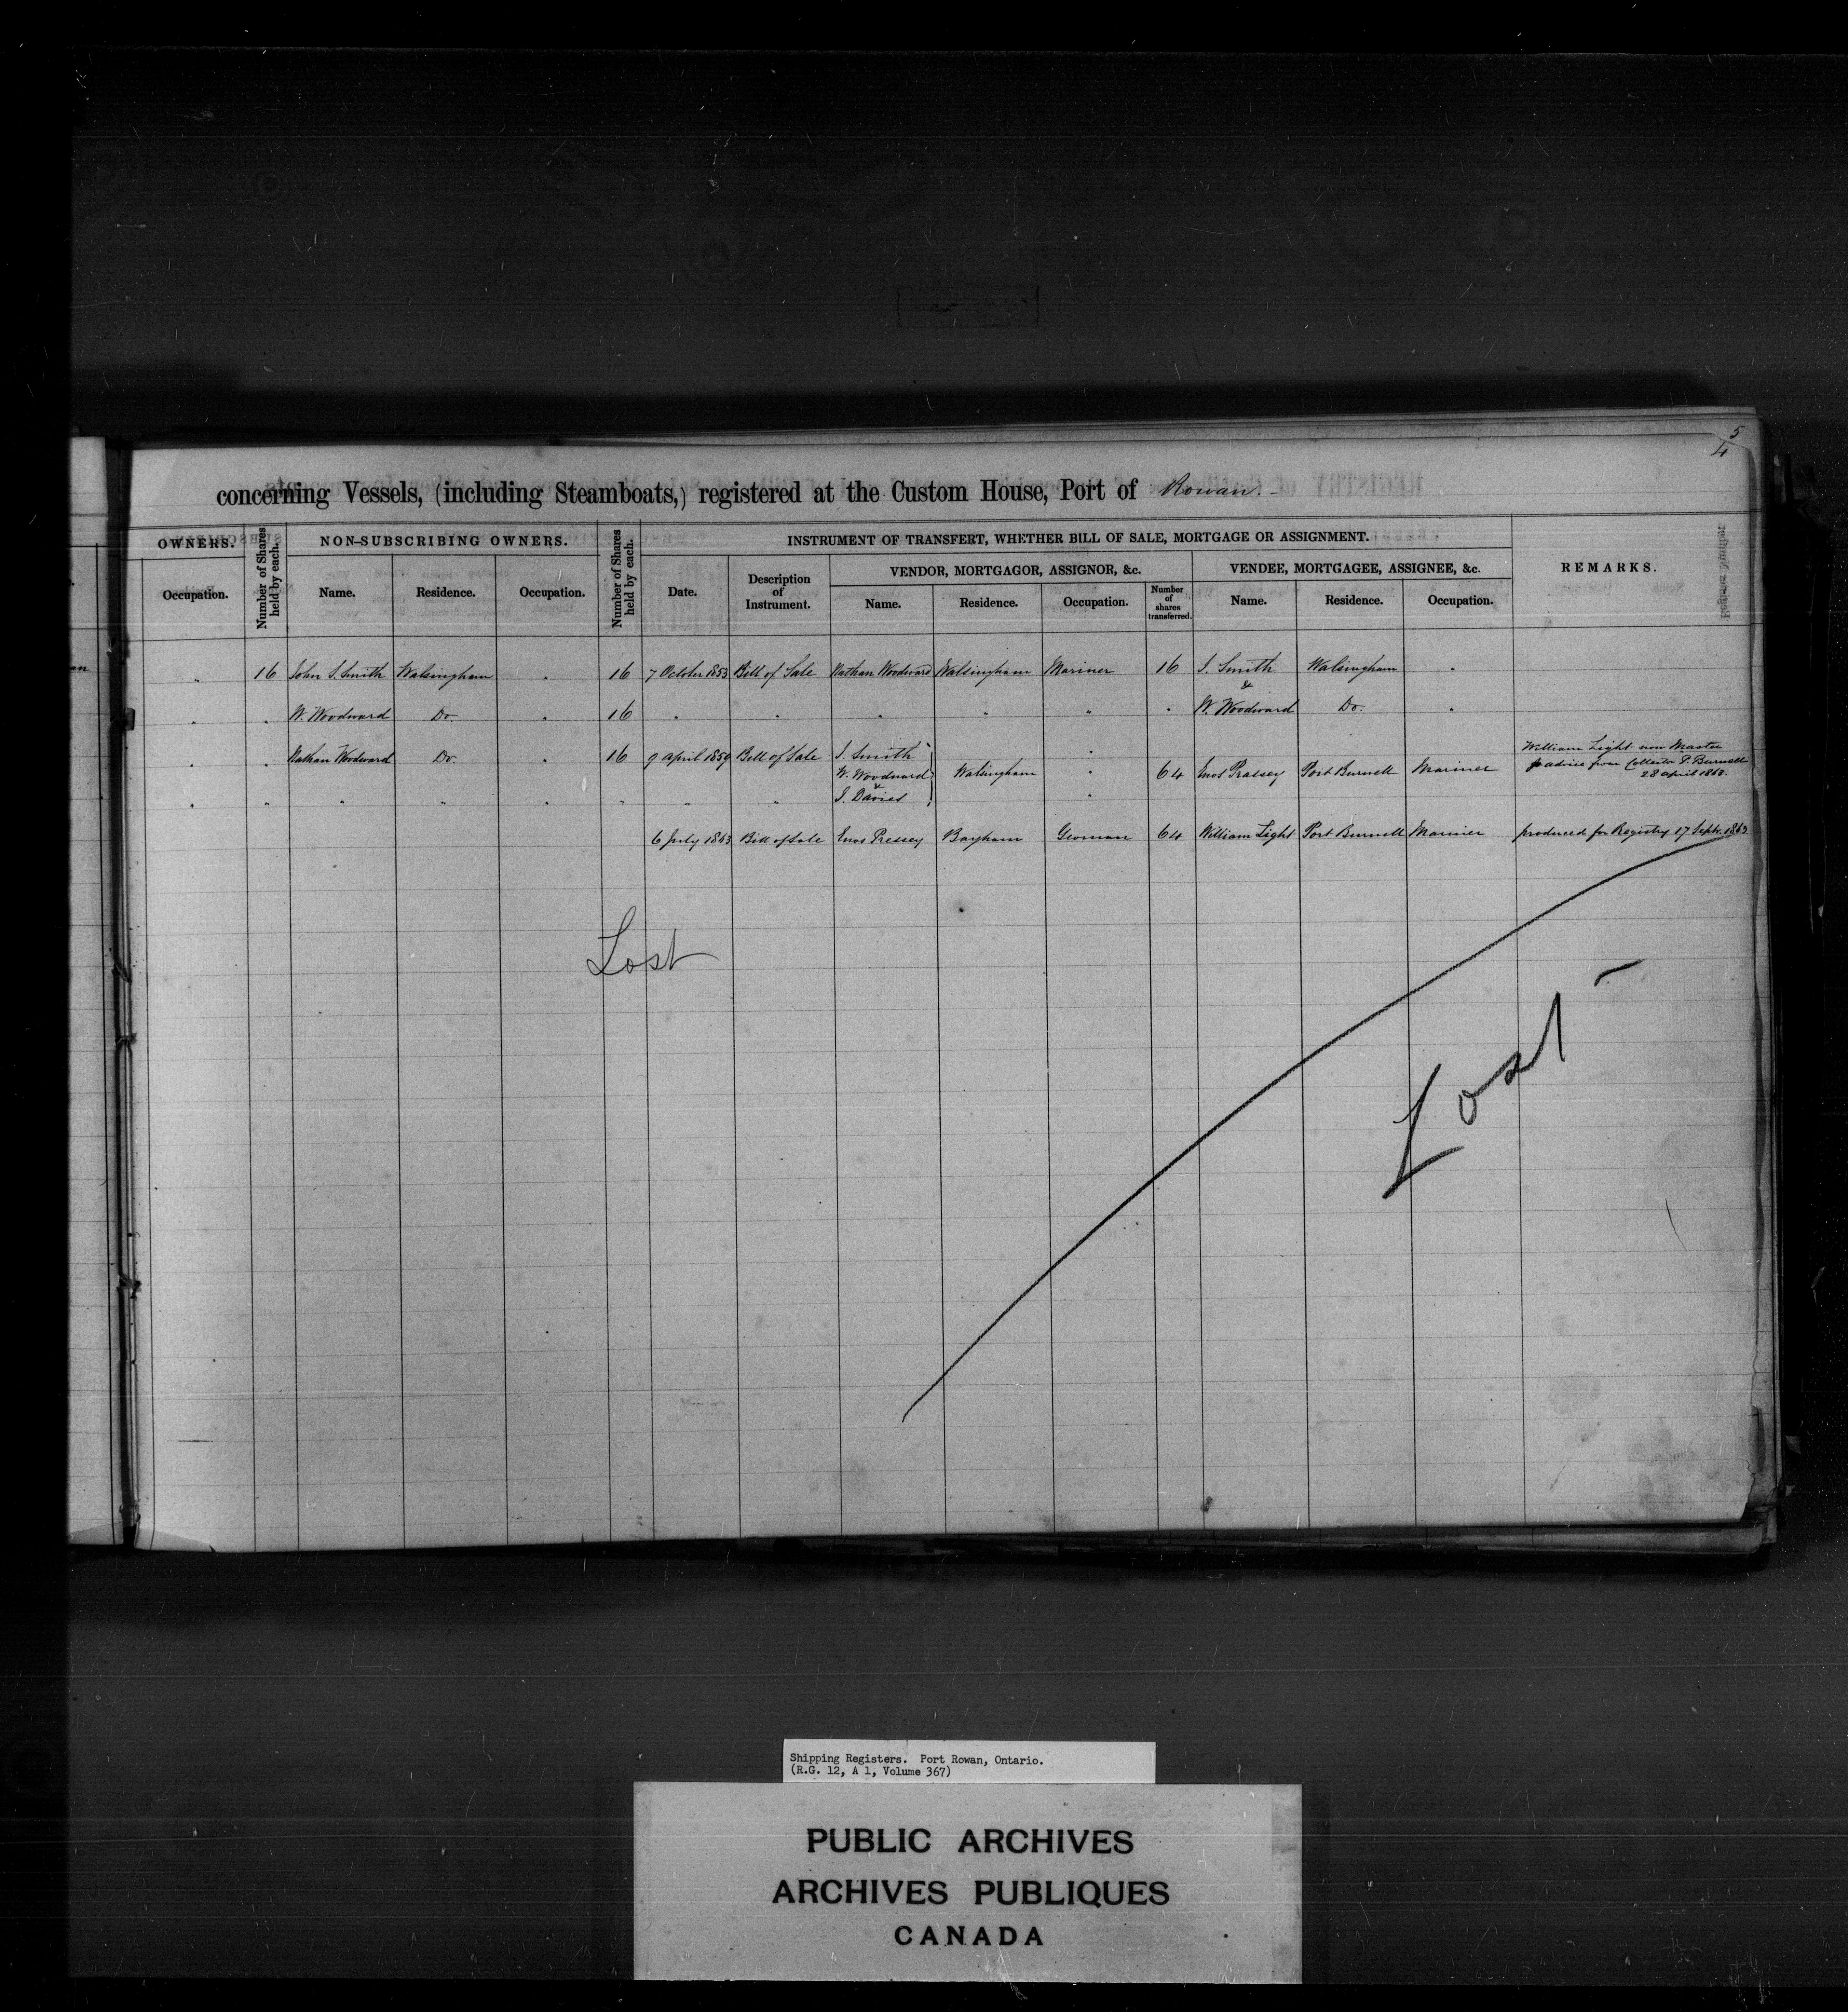 5
4
concerning Vessels, (including Steamboats,) registered at the Custom House, Port of Rowan.-
OWNERS.
Number of Shares held by each.
NON-SUBSCRIBING OWNERS.
Number of Shares held by each.
INSTRUMENT OF TRANSFERT, WHETHER BILL OF SALE, MORTGAGE OR ASSIGNMENT.
REMARKS.
VENDOR, MORTGAGOR, ASSIGNOR, &c.
VENDEE, MORTGAGEE, ASSIGNEE, &c.
Occupation. Name. Residence. Occupation. Date. Description of Instrument. Name. Residence. Occupation. Number of shares transferred. Name. Residence. Occupation.
" 16 John S. Smith Walsingham " 16 7 October 1853 Bill of Sale Nathan Woodward Walsingham Mariner 16 S. Smith Walsingham "
&
" " W. Woodward Do. " 16 " " " " " " W. Woodward Do. "
" " Nathan Woodward Do. " 16 9 April 1859 Bill of Sale S. Smith "
W. Woodward Walsingham " 64 Enos Pressey Port Burwell Mariner
&
" " " " " " " " S. Davies "
William Light now Master
p advice from Collector P. Burwell
28 April 1863.
6 July 1863 Bill of Sale Enos Pressey Bayham Yeoman 64 William Light Port Burwell Mariner produced for Registry 17 Septr. 1863
Lost
Lost
Shipping Registers. Port Rowan, Ontario.
(R.G. 12, A 1, Volume 367)
PUBLIC ARCHIVES
ARCHIVES PUBLIQUES
CANADA